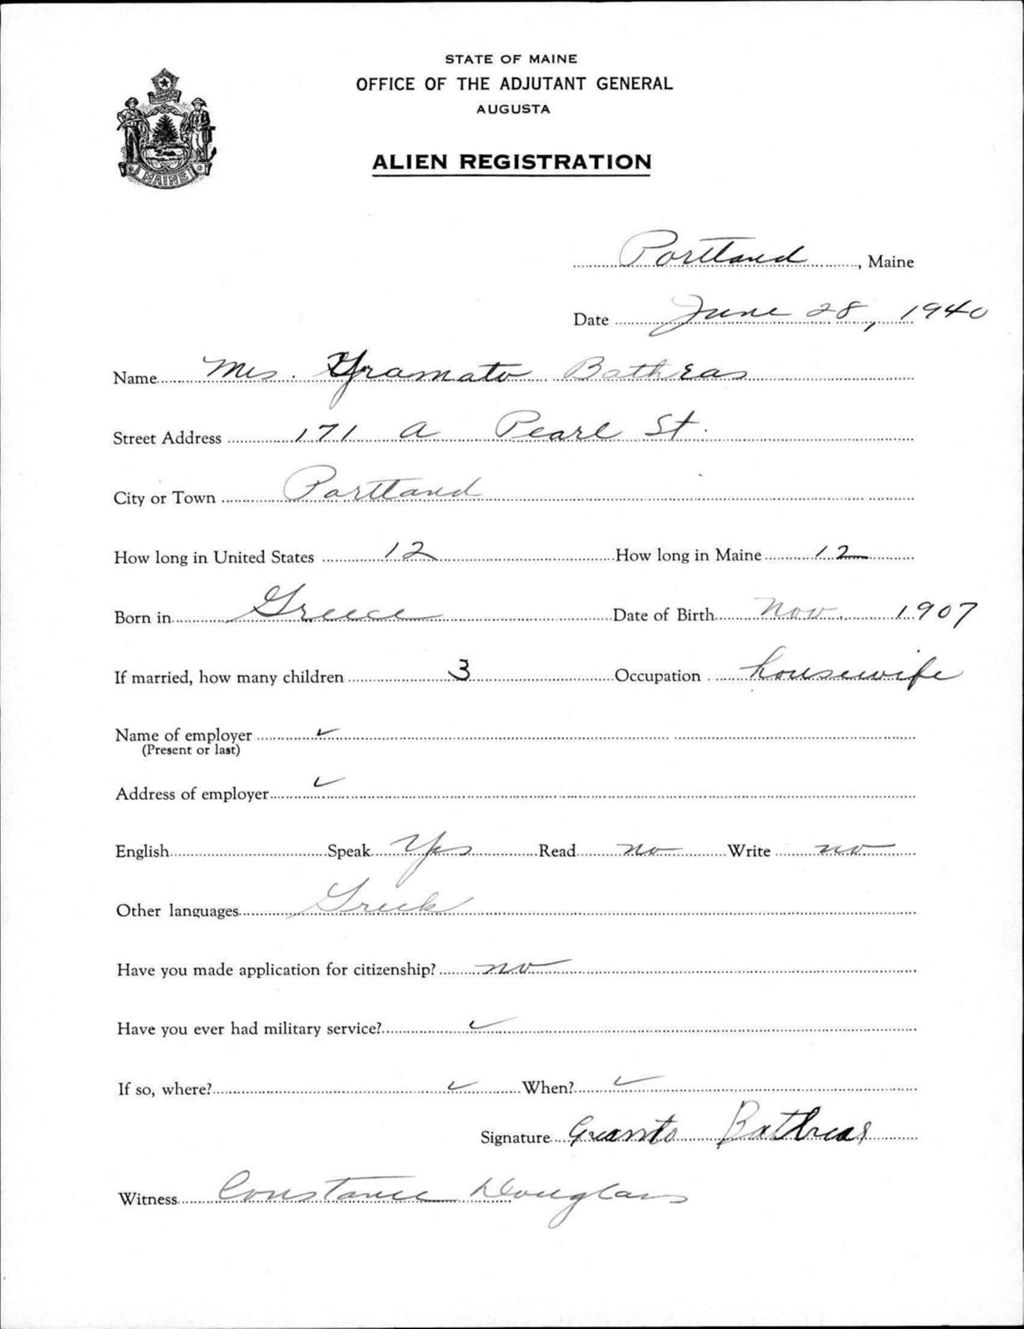 STATE OF MAINE
OFFICE OF THE ADJUTANT GENERAL
AUGUSTA
ALIEN REGISTRATION
MAINE
Portland, Maine
Date June 28, 1940
Name Mrs. Gramato Bathras
Street Address 171 A Pearl St.
City or Town Portland
How long in United States 12 How long in Maine 12
Born in Greece Date of Birth Nov. 1907
If married, how many children 3 Occupation housewife
Name of employer ✓
(Present or last)
Address of employer ✓
English Speak Yes Read no Write no
Other languages Greek
Have you made application for citizenship? no
Have you ever had military service? ✓
If so, where? ✓ When? ✓
Signature Bathras
Witness Constance Douglass